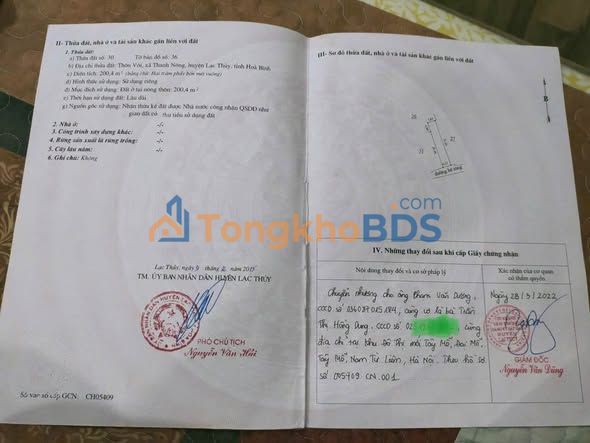 II- Thửa đất, nhà ở và tài sản khác gắn liền với đất
1. Thửa đất:
a) Thửa đất số: 30 Tờ bản đồ số: 36
b) Địa chỉ thửa đất: Thôn Vôi, xã Thanh Nông, huyện Lạc Thủy, tỉnh Hoà Bình.
c) Diện tích: 200,4 m² (bằng chữ: Hai trăm phẩy bốn mét vuông)
d) Hình thức sử dụng: Sử dụng riêng
đ) Mục đích sử dụng: Đất ở tại nông thôn: 200,4 m²
e) Thời hạn sử dụng đất: Lâu dài
g) Nguồn gốc sử dụng: Nhận thừa kế đất được Nhà nước công nhận QSDĐ như
giao đất có thu tiền sử dụng đất
2. Nhà ở: -/-
3. Công trình xây dựng khác: -/-
4. Rừng sản xuất là rừng trồng: -/-
5. Cây lâu năm: -/-
6. Ghi chú: Không
Lạc Thủy, ngày năm 2015
TM. ỦY BAN NHÂN DÂN HUYỆN LẠC THỦY
PHÓ CHỦ TỊCH
Nguyễn Văn Hải
Số vào sổ cấp GCN: CH05409
III- Sơ đồ thửa đất, nhà ở và tài sản khác gắn liền với đất
B
đường bê tông
TongkhoBDS.com
IV. Những thay đổi sau khi cấp Giấy chứng nhận
Nội dung thay đổi và cơ sở pháp lý
Xác nhận của cơ quan
có thẩm quyền
Chuyển nhượng cho ông Phạm Văn Dương,
CCCD số cùng vợ là bà Trần
Thị Hồng Dung, CCCD số cùng
địa chỉ tại Khu Đô Thị mới Tây Mỗ, Đại Mỗ,
Tây Mỗ, Nam Từ Liêm, Hà Nội. Theo hồ sơ
số 005709. CN.001
Ngày 28/3/2022
GIÁM ĐỐC
Nguyễn Văn Dũng